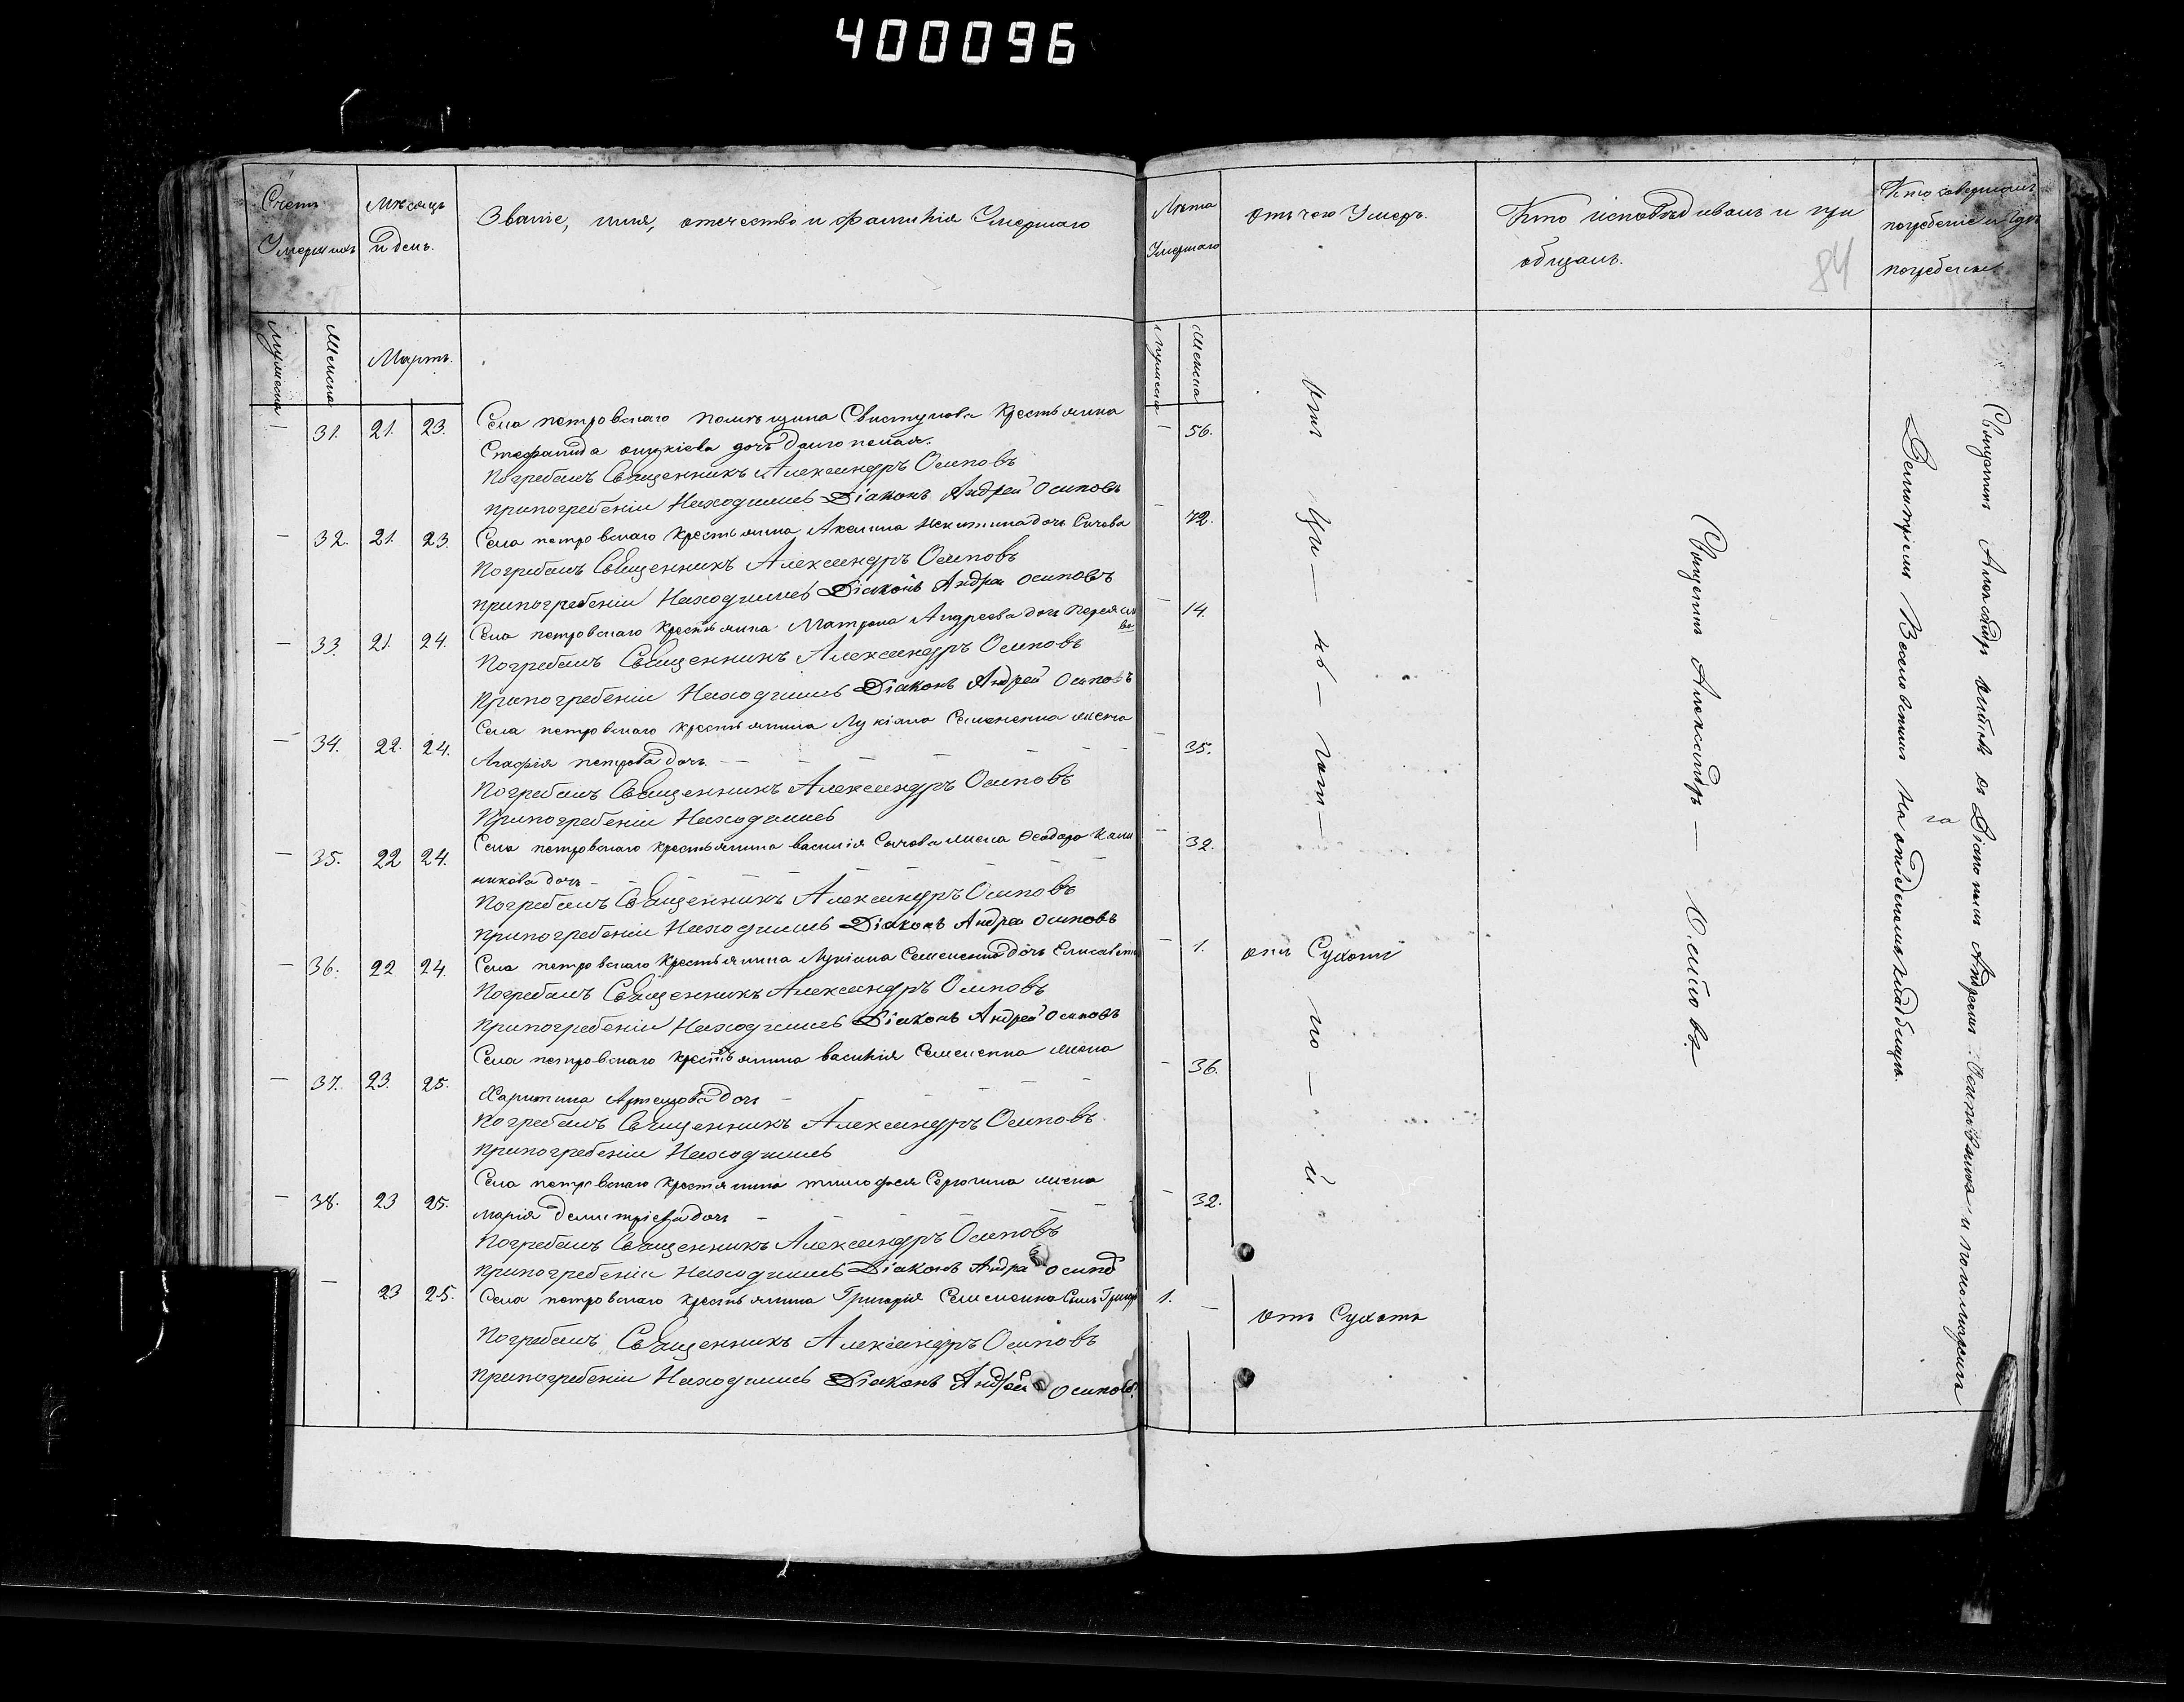 400096
Счетъ Умершихъ
Мѣсяцъ и день.
Званіе, имя, отечество и фамилія Умершаго
Лѣта Умершаго
отъ чего Умеръ.
Кто исповѣдивалъ и при
общалъ.
84
Кто совершалъ
погребеніе и гдѣ
погребены.
Мужеска
Женска
Мартъ.
Мужеска
Женска
— 31. 21. 23. Села петровскаго помѣщика Свистунова крестьянина — 56.
Стефанида дочь
Погребалъ Священникъ Александръ Осиповъ
припогребеніи Находились Діаконъ Андрей Осиповъ
— 32. 21. 23. Села петровскаго крестьянина Акилина Никитина дочь Сичова — 72.
Погребалъ Священникъ Александръ Осиповъ
припогребеніи Находились Діаконъ Андрей Осиповъ
— 33. 21. 24. Села петровскаго крестьянина Матрона Андреева дочь — 14.
Погребалъ Священникъ Александръ Осиповъ
Припогребеніи Находились Діаконъ Андрей Осиповъ
Села петровскаго крестьянина Лукіяна Семененка жена
— 34. 22. 24. Агафія петрова дочь — 35.
Погребалъ Священникъ Александръ Осиповъ
Припогребеніи Находились
— 35. 22 24. Села петровскаго крестьянина василія Сычова жена — 32.
никова дочь
Погребалъ Священникъ Александръ Осиповъ
припогребеніи Находились Діаконъ Андрей Осиповъ
— 36. 22 24. Села петровскаго крестьянина Лукіяна Семененка дочь Елисавета — 1. отъ Сухоты
Погребалъ Священникъ Александръ Осиповъ
припогребеніи Находились Діаконъ Андрей Осиповъ
Села петровскаго крестьянина василія Семененка жена
— 37. 23. 25. Харитина Артемова дочь — 36.
Погребалъ Священникъ Александръ Осиповъ.
припогребеніи Находились
Села петровскаго крестьянина тимофея жена
— 38. 23 25. марія демитріева дочь — 32.
Погребалъ Священникъ Александръ Осиповъ
припогребеніи находились Діаконъ Андрей Осипов
— 23 25. Села петровскаго крестьянина Григорія Семененка Сынъ 1. — отъ Сухоты
Погребалъ Священникъ Александръ Осиповъ
припогребеніи Находились Діаконъ Андрей Осиповъ
отъ Ци — нъ — гот — но — й.
Священникъ Александръ — Осиповъ
Священникъ Александръ Осиповъ съ Діакономъ Андреемъ Осиповымъ и пономаремъ
Демитріемъ на отведенномъ кладбищѣ.